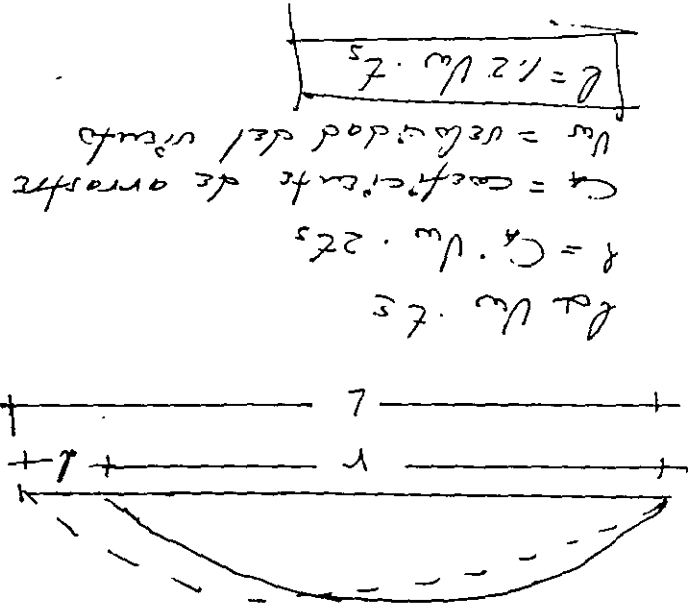 r l
L
l α Vw · ts
l = CA · Vw · 2ts
CA = coeficiente de arrastre
Vw = velocidad del viento
l = 1.2 Vw · ts